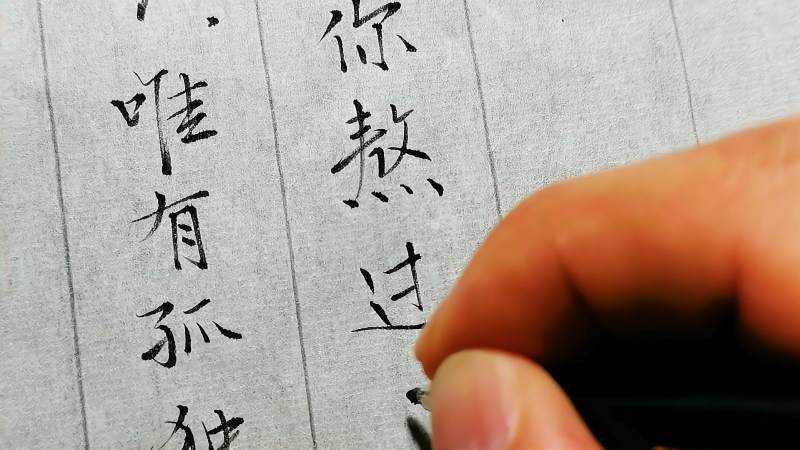 唯有孤独
你熬过